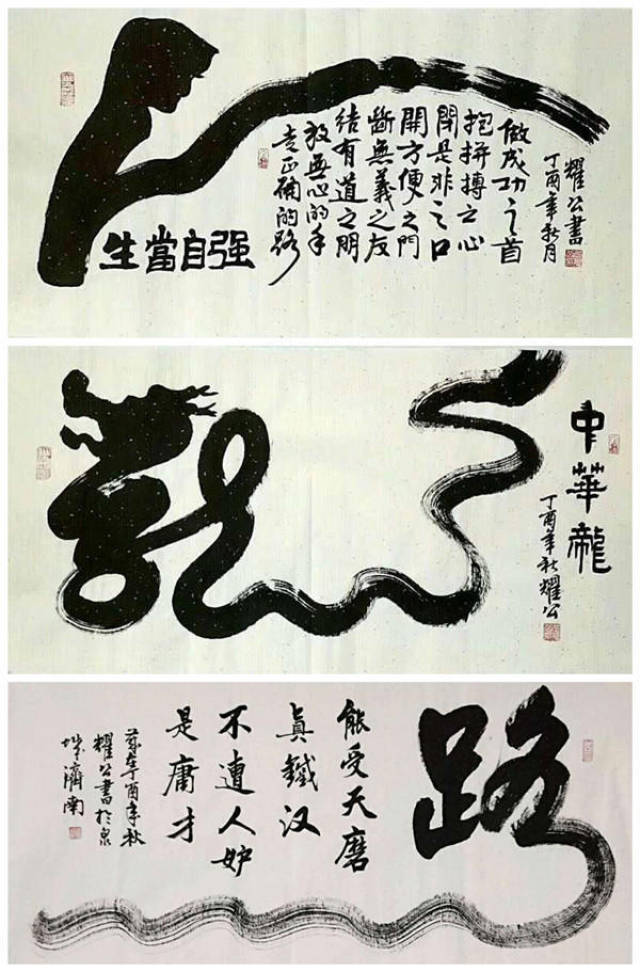 耀公書
丁酉年秋月
做成功之首
抱拼搏之心
閉是非之口
開方便之門
斷無義之友
结有道之朋
放無心的手
走正确的路
生當自强
中華龍
丁酉年秋耀公
龍
路
能受天磨
真鐵汉
不遭人妒
是庸才
歲在丁酉年秋
耀公書於泉
城濟南